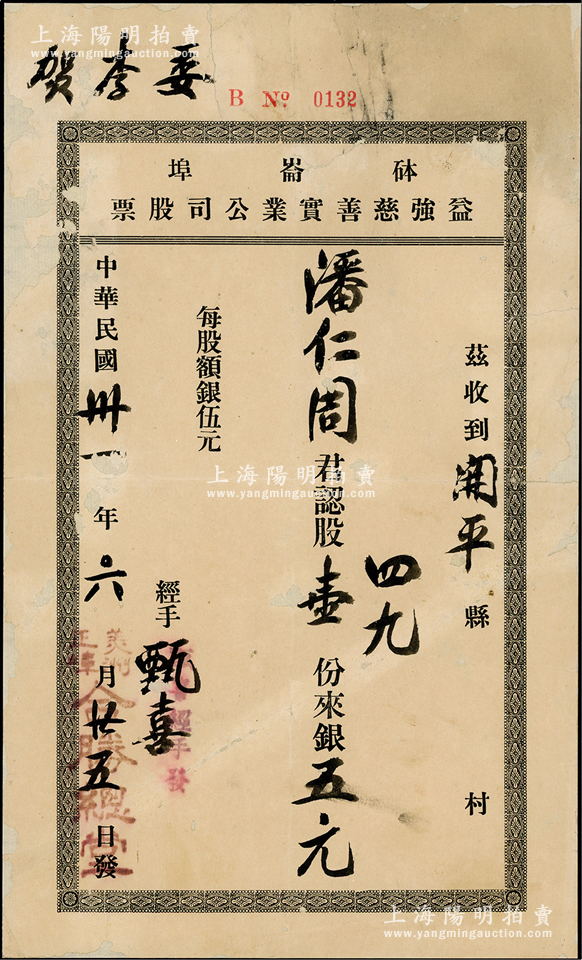 上海陽明拍賣
www.yangmingauction.com
委李賀
B Nº 0132
砵崙埠
益強慈善實業公司股票
茲收到開平縣四九村
潘仁周君認股壹份來銀五元
每股額銀伍元
經手甄喜
中華民國卅一年六月廿五日發
美洲
正埠
合勝總堂
經手發
上海陽明拍賣
www.yangmingauction.com
上海陽明拍賣
www.yangmingauction.com